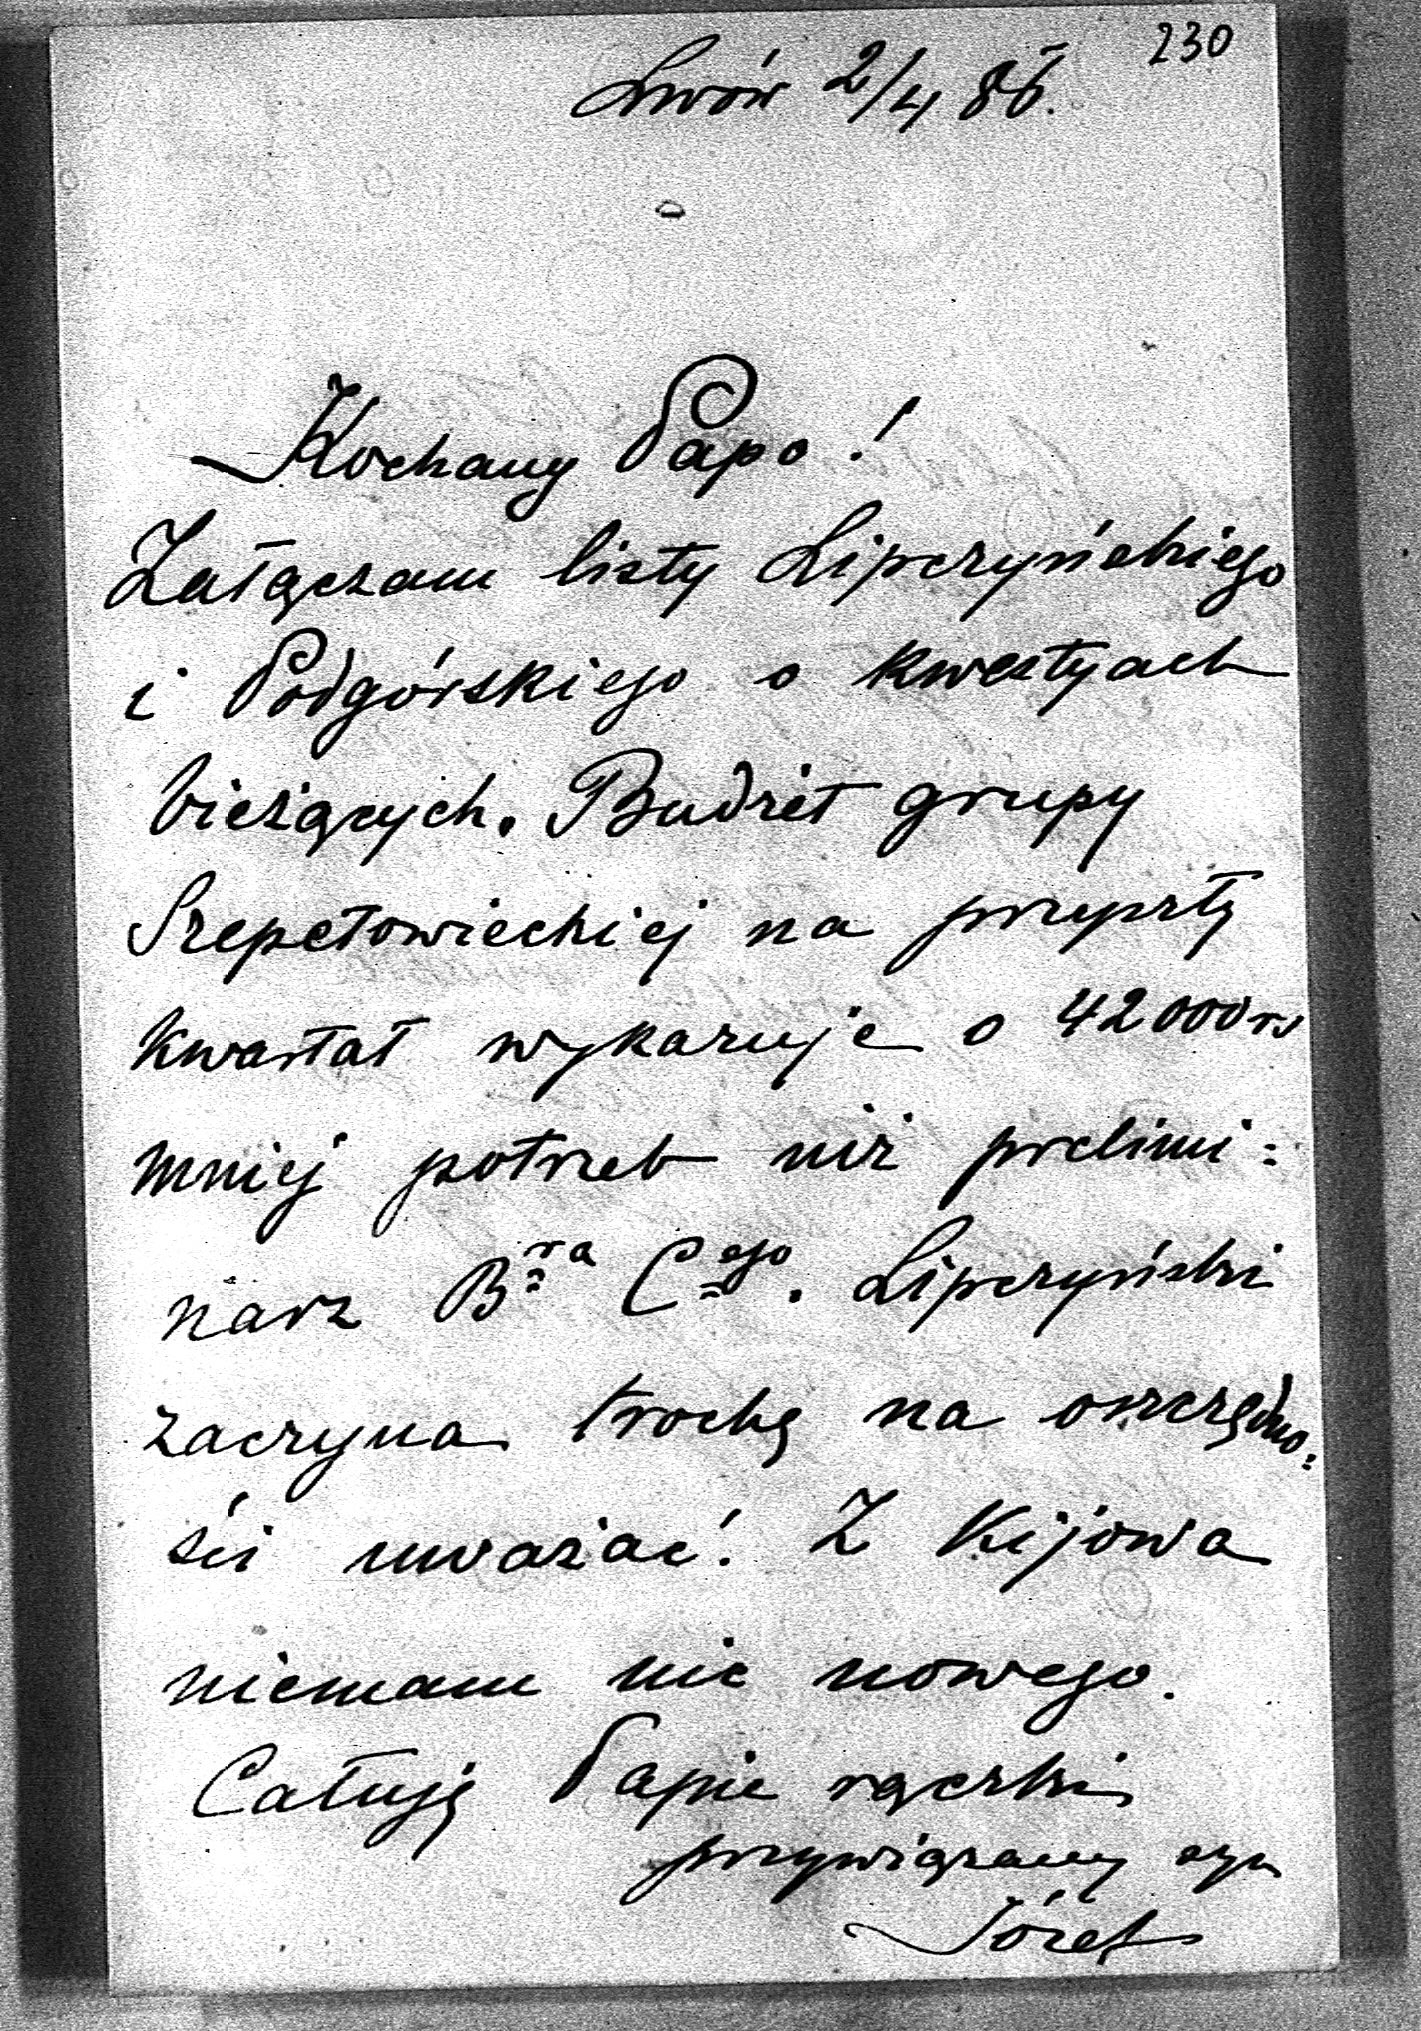 230
Lwów 2/4 86.
Kochany Papo!
Załączam listy Lipczyńskiego
i Podgórskiego o kwestyach
bieżących. Budżet grupy
Szepetowieckiej na przyszły
kwartał wykazuje o 42000 rs
mniej potrzeb niż prelimi=
narz B.ra C.ego. Lipczyński
zaczyna trochę na oszczędno=
ści uważać! Z Kijowa
niemam nic nowego.
Całuję Papie rączki
przywiązany syn
Józef